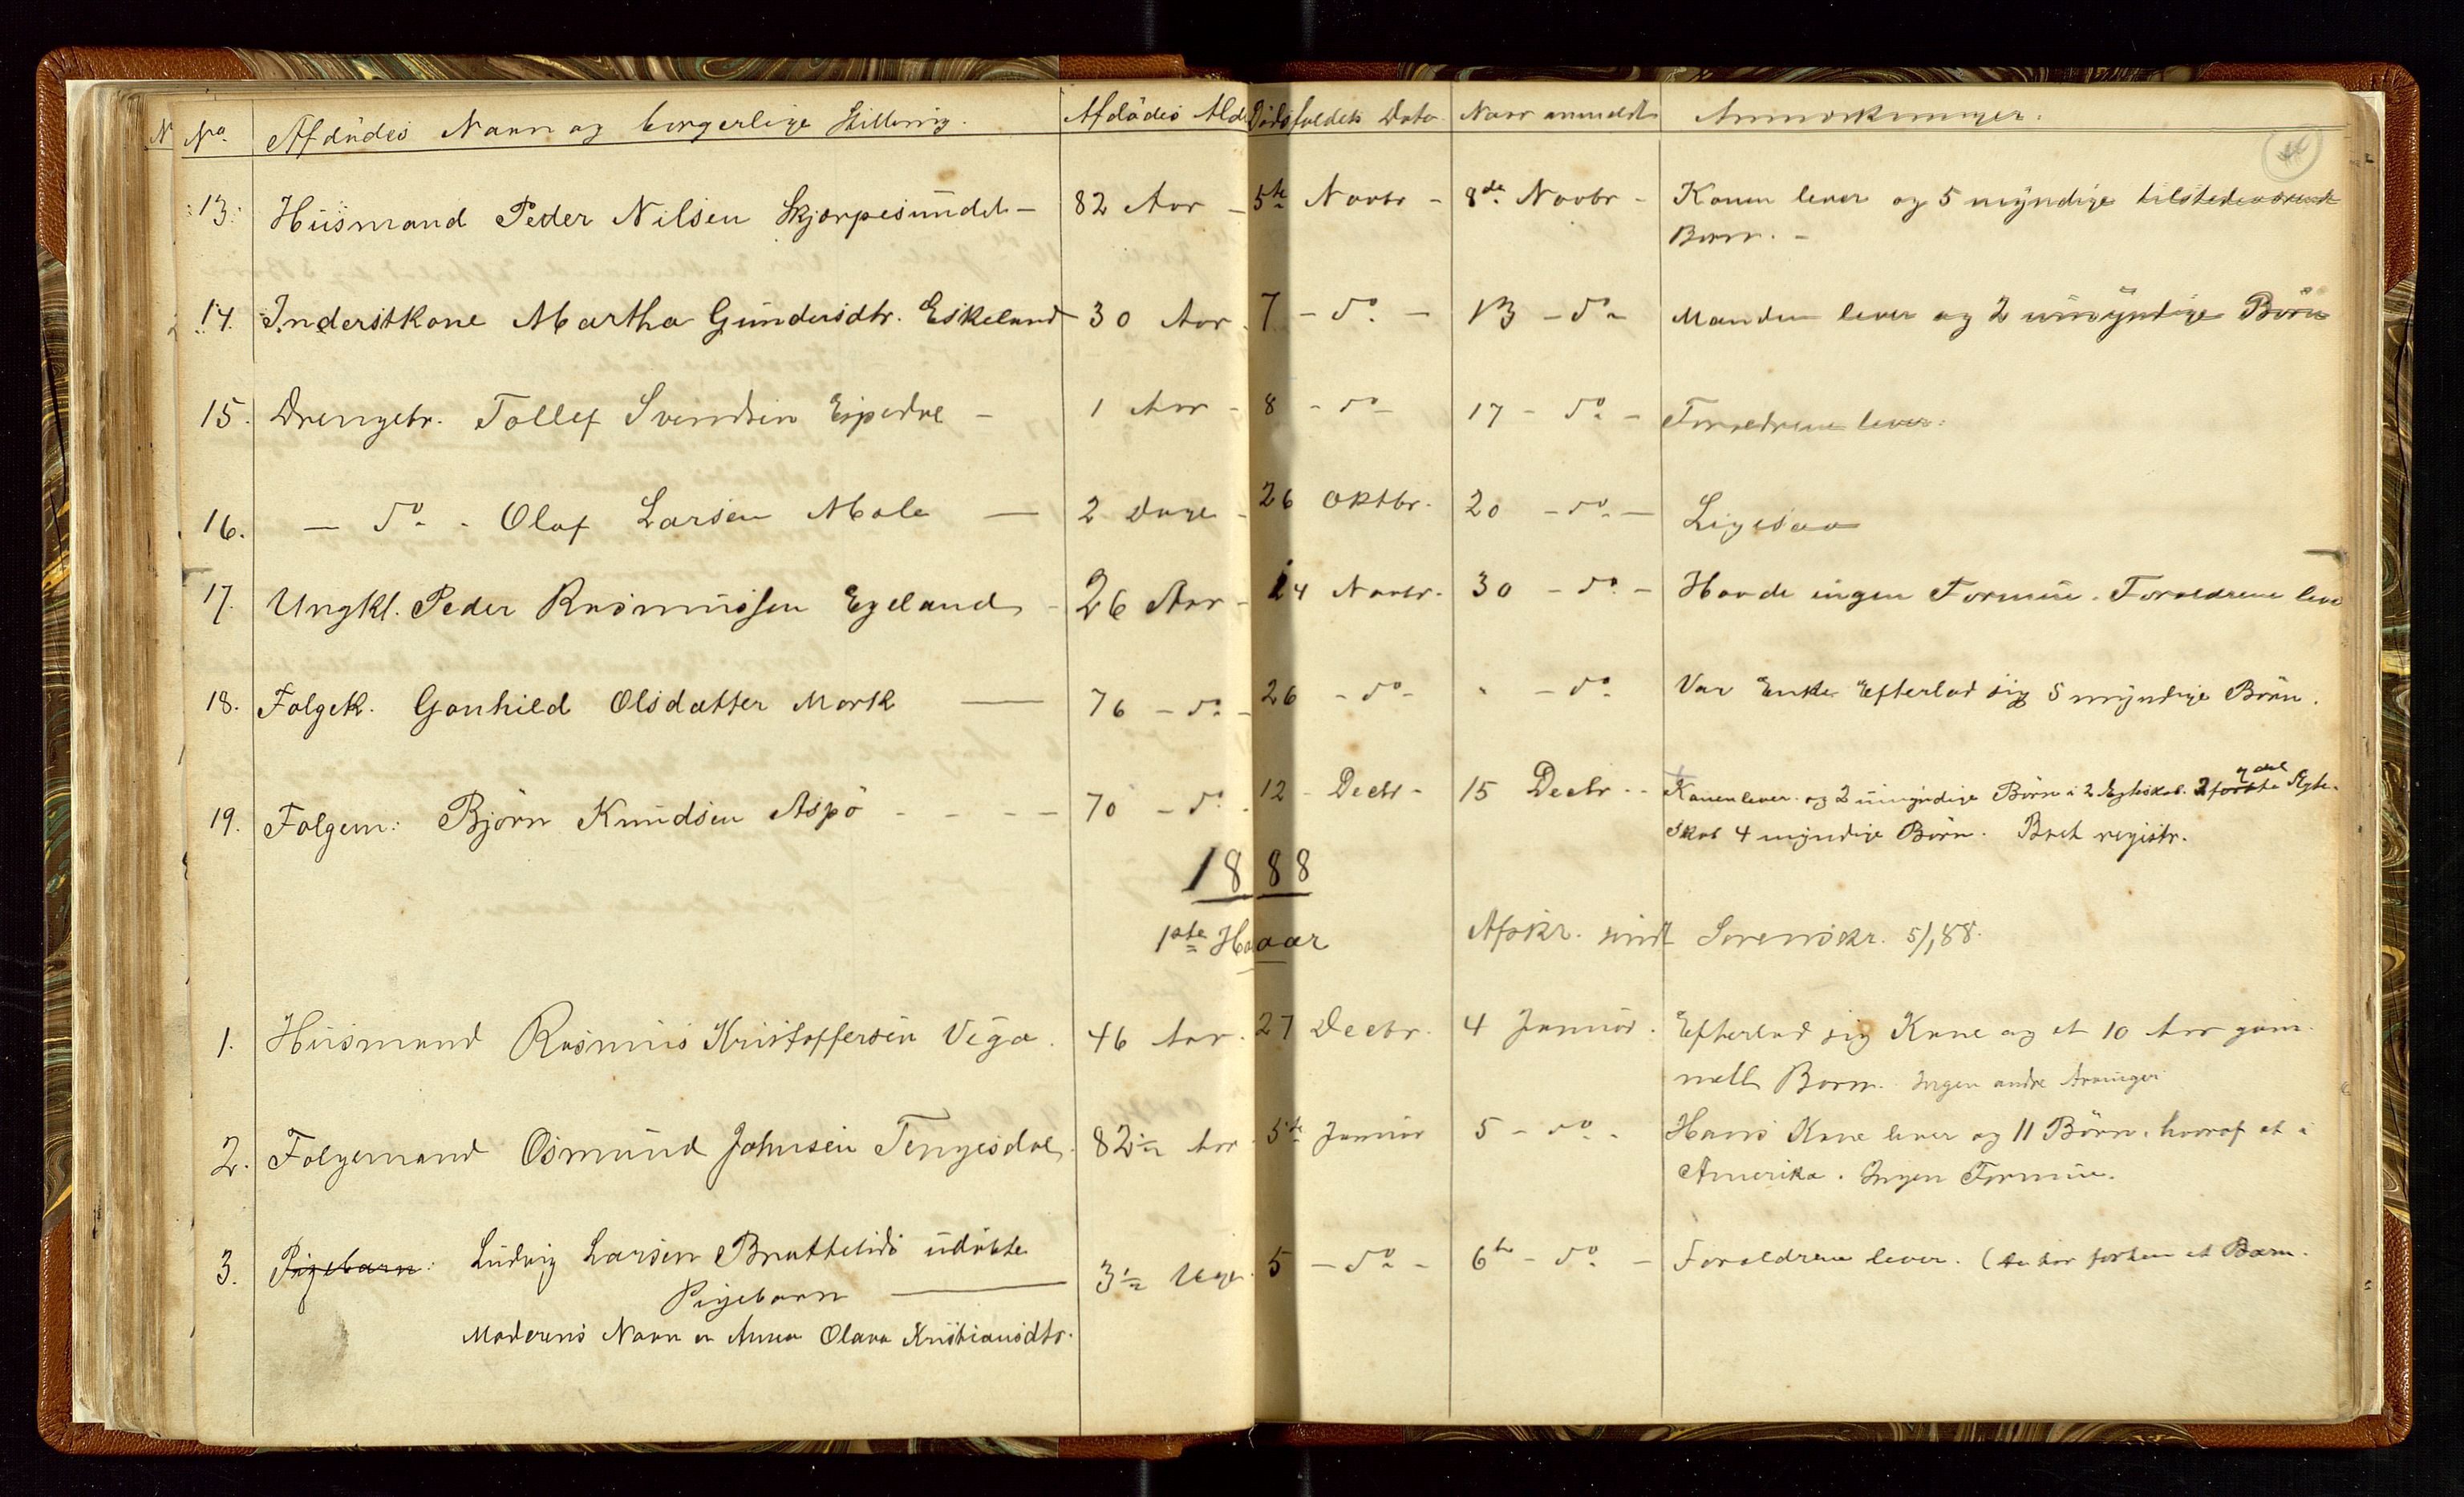 No. Afdødes Navn og borgerlige Stilling. Afdødes Ald Dødsfaldets Dato Naar anmeldt Anmærkninger.
13. Huusmand Peder Nilsen Skjørpesundet – 82 Aar – 5te Novbr – 8de Novbr – Konen lever og 5 myndige tilstedeværende
Børn. –
14. Inderstkone Martha Gundersdtr. Eskeland 30 Aar. 7 – do – 13 – do Manden lever og 2 umyndige Børn
15. Drengebr. Tollef Svendsen Eipedal – 1 Aar – 8 – do – 17 – do – Forældrene lever.
16. – do – Olaf Larsen Mæle — 2 Dage – 26 Oktbr. 20 – do – Ligesaa
17. Ungkl. Peder Rasmussen Egeland – 26 Aar – 24 Novbr. 30 – do – Havde ingen Formue. Forældrene leve
18. Folgek. Gonhild Olsdatter Mørk — 76 – do – 26 – do – " – do Var Enke Efterlod sig 5 myndige Børn.
19. Folgem: Bjørn Knudsen Aspø – – – – 70 – do – 12 – Decbr – 15 Decbr. – Konen lever og 2 umyndige Børn i 2 Ægteskab. første Ægte-
skab 4 myndige Børn. Boet registr.
1888
1ste Halvaar Afskr. sendt Sorenskr. 5/1 88.
1. Huusmand Rasmus Kristoffersen Vēga. 46 Aar. 27 Decbr. 4 Januar. Efterlod sig Kone og et 10 Aar gam-
melt Barn. Ingen andre Arvinger
2. Folgemand Osmund Johnsen Tengesdal 82½ Aar 5te Januar 5 – do – Hans Kone lever og 11 Børn, hvoraf et i
Amerika. Ingen Formue.
3. Pigebarn: Ludvig Larsen Bratthetids udøbte 3½ Uge. 5 – do – 6te – do – Forældrene lever. (de har forhen et Barn.
Pigebarn —
Moderens Navn er Anna Olava Kristiansdtr.